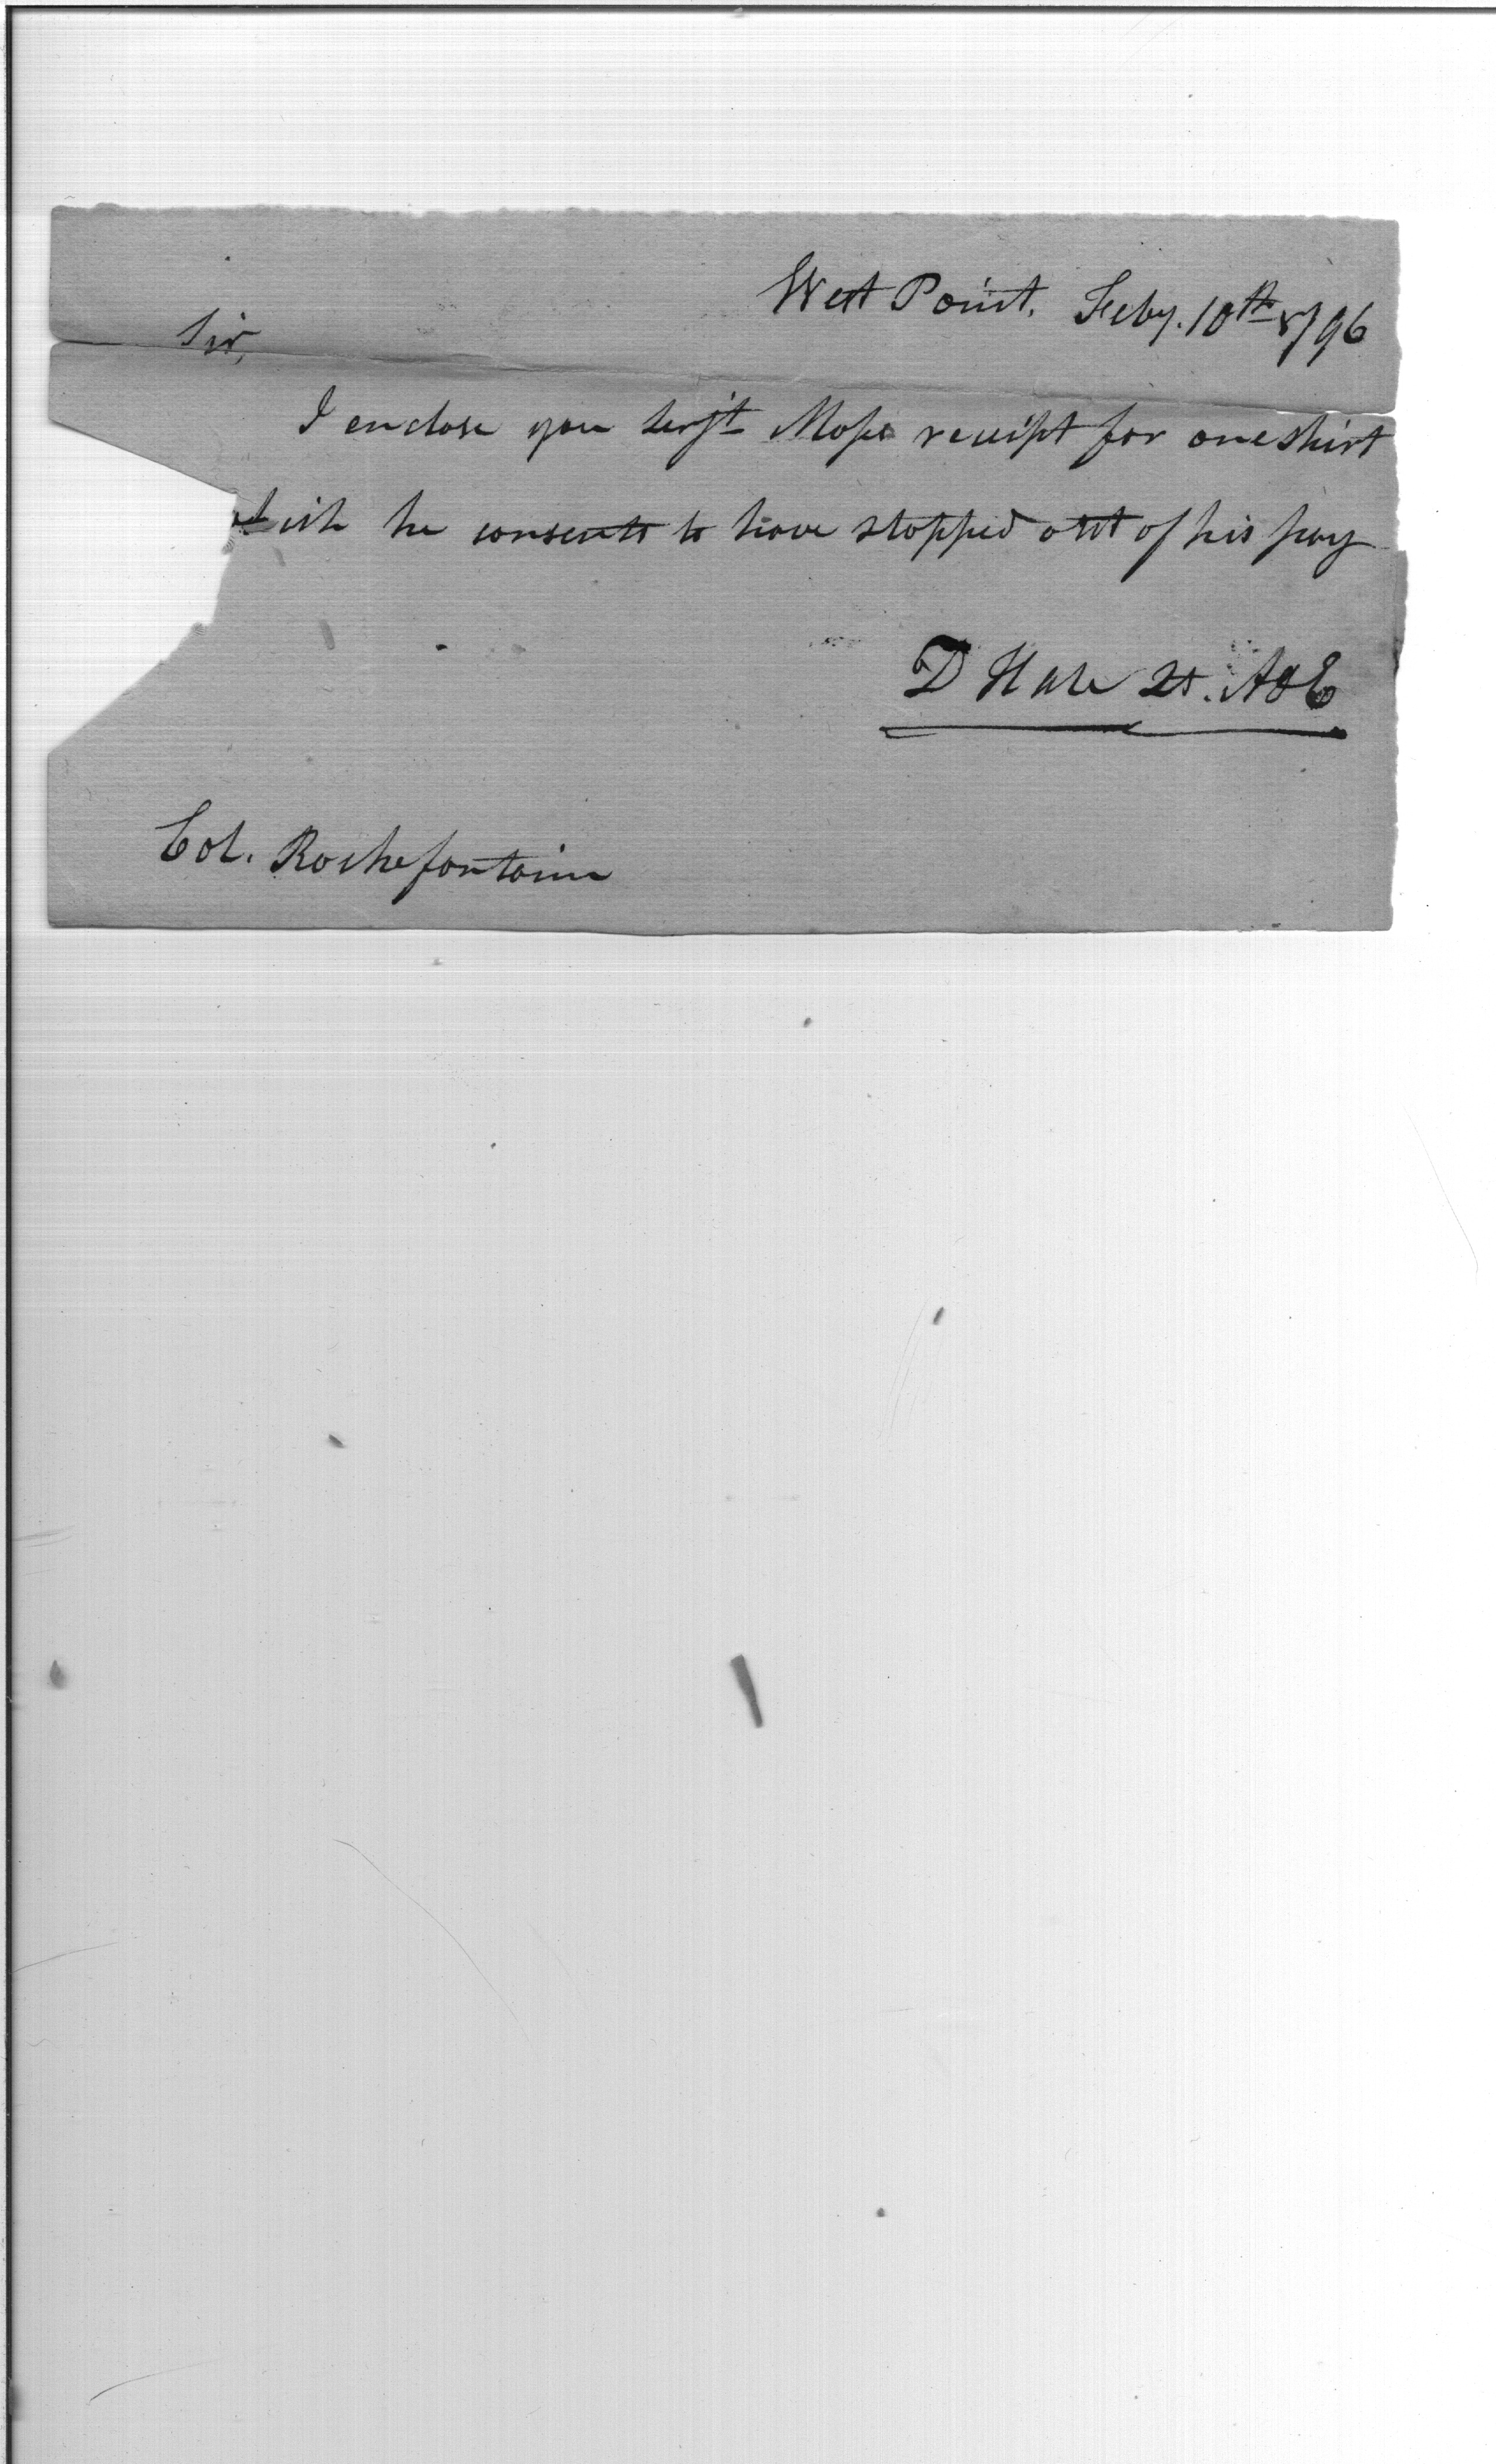 West Point. Feby. 10th 1796
Sir,
I enclose you Serjt Moses receipt for one shirt
which he consents to have stopped out of his pay
D Hale Lt. A&E
Col. Rochefontaine